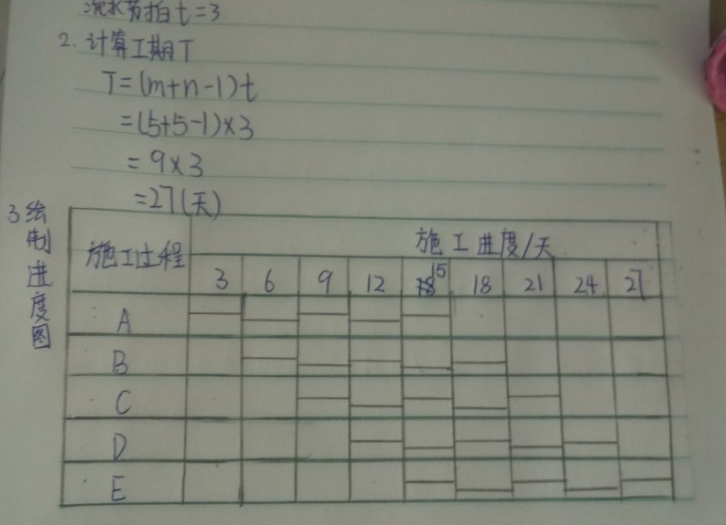 流水节拍t=3
2. 计算工期T
T=(m+n-1)t
=(5+5-1)×3
=9×3
=27(天)
3绘制进度图
施工过程 施工进度/天
3 6 9 12 15 18 21 24 27
A
B
C
D
E